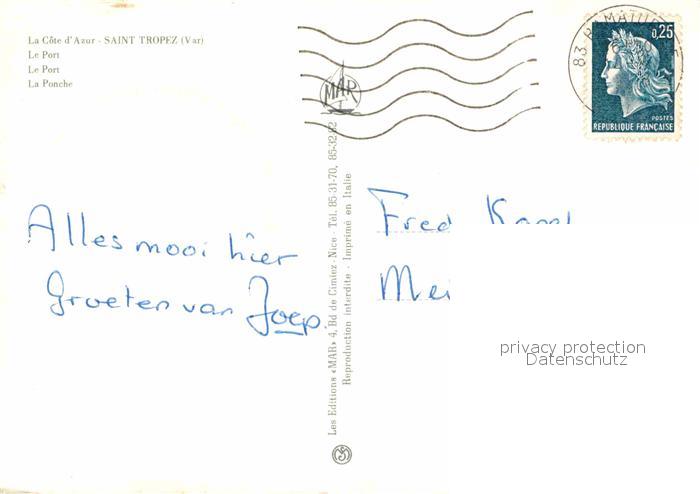 La Côte d'Azur - SAINT TROPEZ (Var)
Le Port
Le Port
La Ponche
MAR
83
0,25
POSTES
REPUBLIQUE FRANÇAISE
Alles mooi hier
Groeten van Joep.
Les Editions «MAR» 4, Bd de Cimiez - Nice - Tél. 85-31-70, 85-32-92
Reproduction interdite - Imprimé en Italie
Fred
Mei
privacy protection
Datenschutz